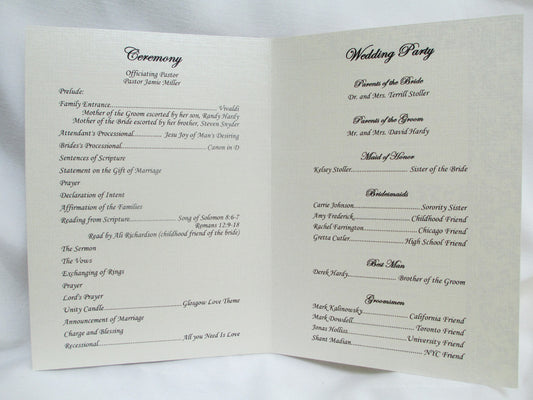 Ceremony
Officiating Pastor
Pastor Jamie Miller
Prelude:
Family Entrance..........Vivaldi
Mother of the Groom escorted by her son, Randy Hardy
Mother of the Bride escorted by her brother, Steven Snyder
Attendant's Processional..........Jesu Joy of Man's Desiring
Brides's Processional..........Canon in D
Sentences of Scripture
Statement on the Gift of Marriage
Prayer
Declaration of Intent
Affirmation of the Families
Reading from Scripture..........Song of Solomon 8:6-7
Romans 12:9-18
Read by Ali Richardson (childhood friend of the bride)
The Sermon
The Vows
Exchanging of Rings
Prayer
Lord's Prayer
Unity Candle..........Glasgow Love Theme
Announcement of Marriage
Charge and Blessing
Recessional..........All you Need Is Love
Wedding Party
Parents of the Bride
Dr. and Mrs. Terrill Stoller
Parents of the Groom
Mr. and Mrs. David Hardy
Maid of Honor
Kelsey Stoller..........Sister of the Bride
Bridesmaids
Carrie Johnson..........Sorority Sister
Amy Frederick..........Childhood Friend
Rachel Farrington..........Chicago Friend
Gretta Cutler..........High School Friend
Best Man
Derek Hardy..........Brother of the Groom
Groomsmen
Mark Kalinowsky..........California Friend
Mark Dowdell..........Toronto Friend
Jonas Holliss..........University Friend
Shant Madian..........NYC Friend